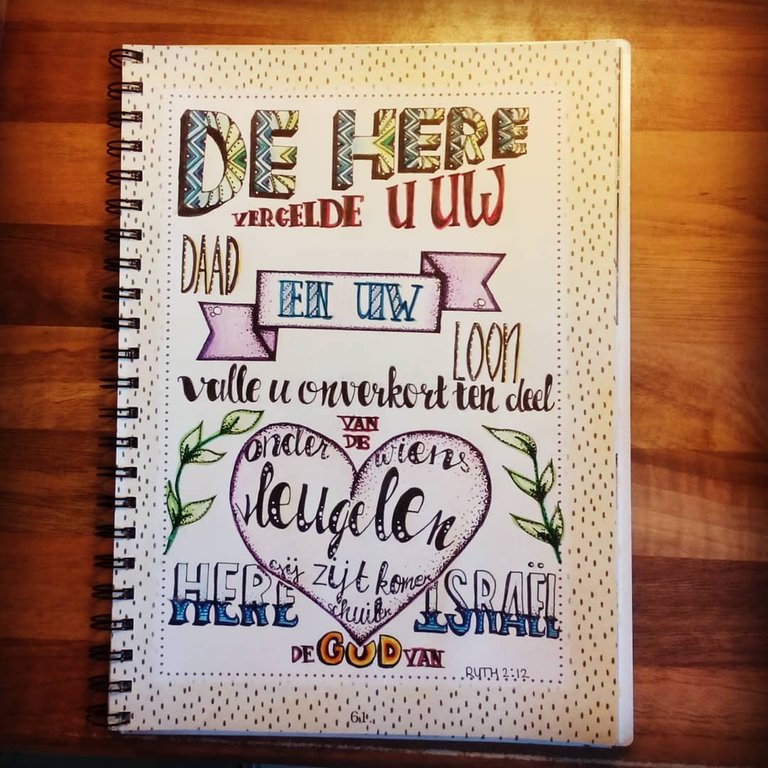 DE HERE
VERGELDE U UW
DAAD
EN UW
LOON
valle u onverkort ten deel
VAN
DE
onder wiens
vleugelen
gij zijt komen
schuilen
HERE ISRAËL
DE GOD VAN
RUTH 2:12
61